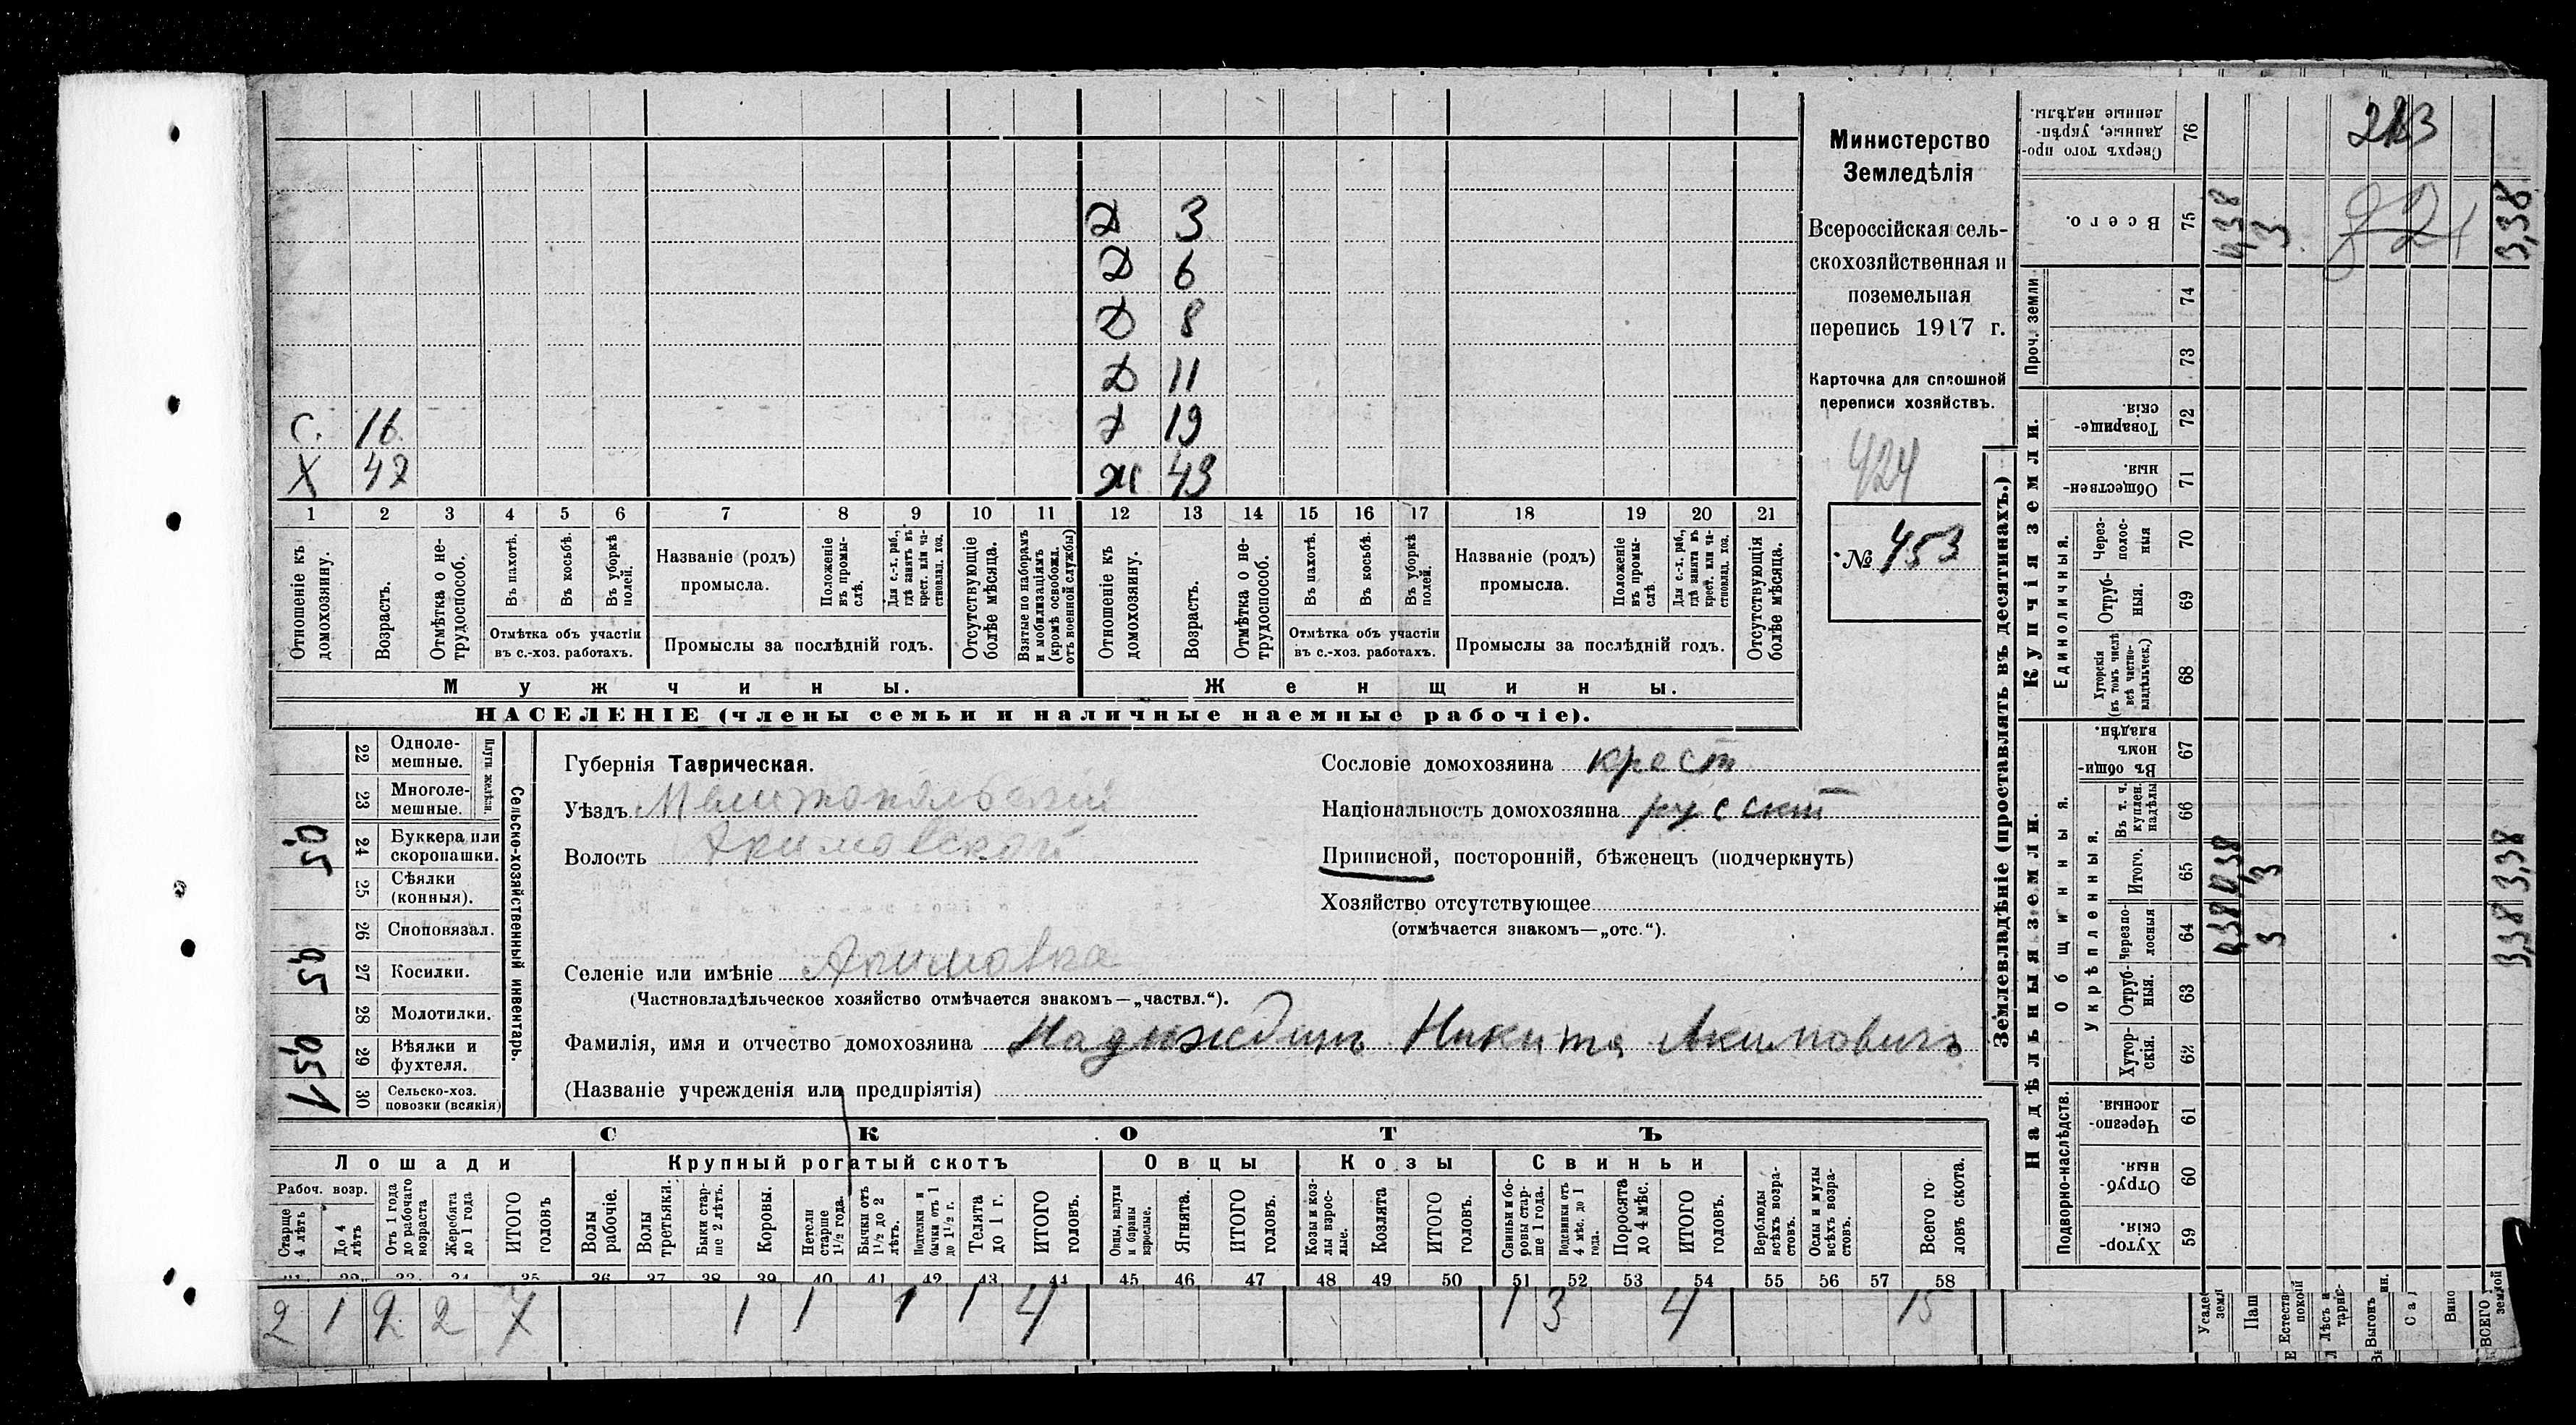 Д 3
Д 6
Д 8
Д 11
С. 16 Д 19
Х 47 Ж 43
1 2 3 4 5 6 7 8 9 10 11 12 13 14 15 16 17 18 19 20 21
Отношеніе къ домохозяину.
Возрастъ.
Отмѣтка о нетрудоспособ.
Въ пахотѣ.
Въ косьбѣ.
Въ уборкѣ полей.
Отмѣтка объ участіи
въ с.-хоз. работахъ.
Названіе (родъ)
промысла.
Положеніе въ промыслѣ.
Для с.-х. раб., гдѣ занятъ въ крест. или частновлад. хоз.
Промыслы за послѣдній годъ.
Отсутствующіе болѣе мѣсяца.
Взятые по наборамъ и мобилизаціямъ (кромѣ освобожд. отъ военной службы)
Отношеніе къ домохозяину.
Возрастъ.
Отмѣтка о нетрудоспособ.
Въ пахотѣ.
Въ косьбѣ.
Въ уборкѣ полей.
Отмѣтка объ участіи
въ с.-хоз. работахъ.
Названіе (родъ)
промысла.
Положеніе въ промыслѣ.
Для с.-х. раб., гдѣ занятъ въ крест. или частновлад. хоз.
Промыслы за послѣдній годъ.
Отсутствующія болѣе мѣсяца.
Мужчины. Женщины.
НАСЕЛЕНІЕ (члены семьи и наличные наемные рабочіе).
Министерство
Земледѣлія
Всероссійская сель-
скохозяйственная и
поземельная
перепись 1917 г.
Карточка для сплошной
переписи хозяйствъ.
424
№ 453
Сельско-хозяйственный инвентарь.
Плуги желѣзн.
22 Однолемешные.
23 Многолемешные.
24 Буккера или скоропашки. 0,5
25 Сѣялки (конныя).
26 Сноповязал.
27 Косилки. 0,5
28 Молотилки.
29 Вѣялки и фухтеля. 0,5
30 Сельско-хоз. повозки (всякія) 1
Губернія Таврическая.
Уѣздъ Мелитопольскій
Волость Акимовской
Селеніе или имѣніе Акимовка
(Частновладѣльческое хозяйство отмѣчается знакомъ—„частвл.“).
Фамилія, имя и отчество домохозяина Надеждинъ Никита Акимовичъ
(Названіе учрежденія или предпріятія)
Сословіе домохозяина крест
Національность домохозяина русскій
Приписной, посторонній, бѣженецъ (подчеркнуть)
Хозяйство отсутствующее
(отмѣчается знакомъ—„отс.“).
СКОТЪ
Лошади Крупный рогатый скотъ Овцы Козы Свиньи
Рабоч. возр.
Старше 4 лѣтъ
До 4 лѣтъ
Отъ 1 года до рабочаго возраста
Жеребята до 1 года
ИТОГО головъ
Волы рабочіе.
Волы третьяки.
Быки старше 2 лѣтъ.
Коровы.
Нетели старше 1½ года.
Бычки отъ 1½ до 2 лѣтъ.
Подтелки и бычки отъ 1 до 1½ г.
Телята до 1 г.
ИТОГО головъ.
Овцы, валухи и бараны взрослые.
Ягнята.
ИТОГО головъ.
Козы и козлы взрослые.
Козлята
ИТОГО головъ.
Свиньи и боровы старше 1 года.
Подсвинки отъ 4 мѣс. до 1 года.
Поросята до 4 мѣс.
ИТОГО головъ.
Верблюды всѣхъ возрастовъ.
Ослы и мулы всѣхъ возрастовъ.
Всего головъ скота.
31 32 33 34 35 36 37 38 39 40 41 42 43 44 45 46 47 48 49 50 51 52 53 54 55 56 57 58
2 1 2 2 7 1 1 1 1 4 1 3 4 15
Землевладѣніе (проставлять въ десятинахъ.)
Надѣльныя земли.
Купчія земли.
Проч. земли
Подворно-наслѣдств.
Общинныя.
Укрѣпленныя.
Единоличныя.
76 Сверхъ того проданные, укрѣпленные надѣлы. 213
75 Всего. 0,38 3 3,38
821
74
73
72 Товарищескія.
71 Общественныя
70 Черезполосныя
69 Отрубныя.
68 Хуторскія (въ томъ числѣ всѣ частновладѣльческ.)
67 Въ общинномъ владѣн.
66 Въ т. ч. куплен. надѣлы
65 Итого. 0,38 3 3,38
64 Черезполосныя 0,38 3 3,38
63 Отрубныя.
62 Хуторскія.
61 Черезполосныя.
60 Отрубныя.
59 Хуторскія.
Усаде земл
Паш
Естеств покой
Лѣсъ и тарнс
Выгонъ
Сад
Вино
ВСЕГО земл